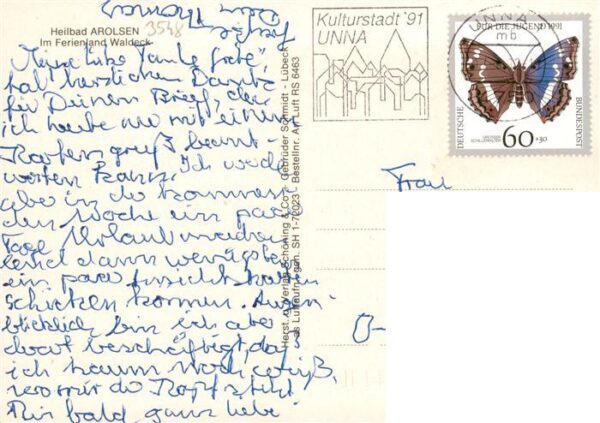 Heilbad AROLSEN
Im Ferienland Waldeck
3548
Meine liebe Tante Grete",
hab herzlichen Dank
für Deinen Brief, den
ich heute nur mit einem
Kartengruß beant-
worten kann. Ich werde
aber in der kommen
den Woche ein paar
Tage Urlaub machen
und dann wenigstens
ein paar Ansichtskarten
schicken können. Augen-
blicklich bin ich aber
derart beschäftigt, daß
ich kaum noch weiß,
wo mir der Kopf steht.
Für bald ganz liebe
Herst. u. Verlag Schöning & Co · Gebrüder Schmidt - Lübeck
Das Luftaufn. gen. SH 1-72023 Bestellnr. Ar Luft RS 6463
Kulturstadt '91
UNNA
UNNA
mb
FÜR DIE JUGEND 1991
DEUTSCHE
BUNDESPOST
GROSSER
SCHILLERFALTER
60+30
Frau
O-